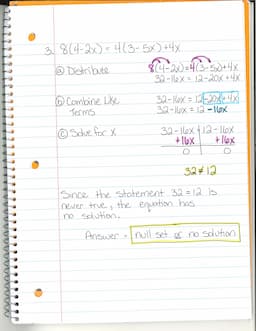 3. 8(4-2x) = 4(3-5x) +4x
ⓐ Distribute
8(4-2x)=4(3-5x)+4x
32-16x = 12-20x+4x
ⓑ Combine Like Terms
32-16x = 12-20x+4x
32-16x = 12 -16x
ⓒ Solve for x
32-16x = 12-16x
+16x +16x
0 0
32≠12
Since the statement 32=12 is
never true, the equation has
no solution.
Answer = null set or no solution